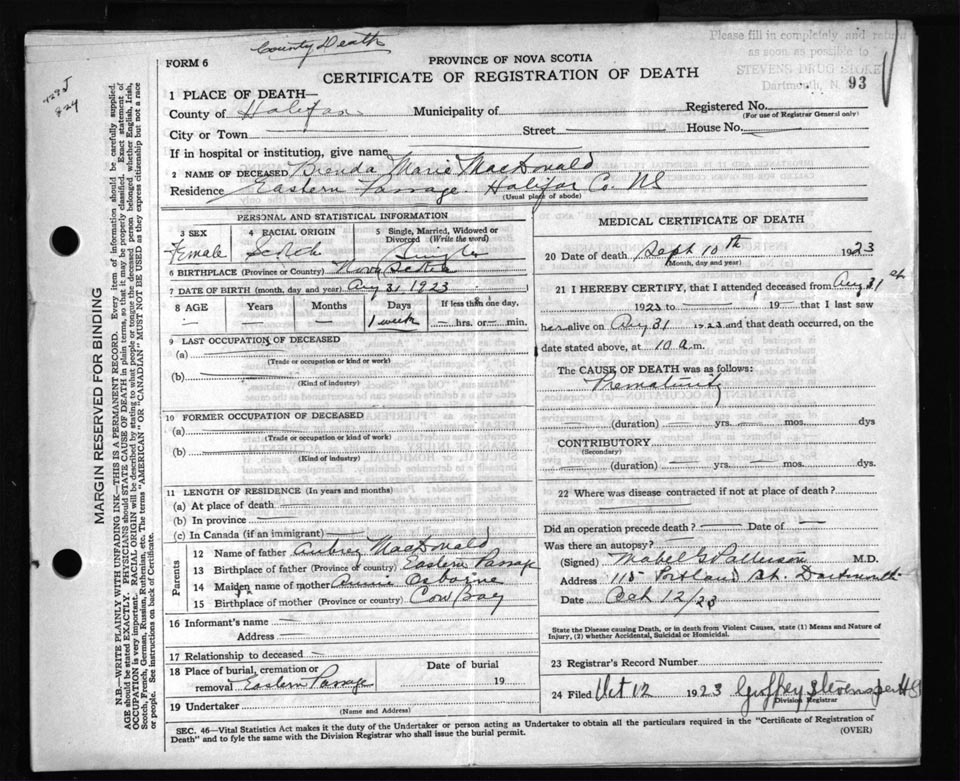 County Death
Please fill in completely and return
as soon as possible to
STEVENS DRUG STORE
Dartmouth, N.
93
FORM 6
PROVINCE OF NOVA SCOTIA
CERTIFICATE OF REGISTRATION OF DEATH
1 PLACE OF DEATH—
County of Halifax Municipality of Registered No.
(For use of Registrar General only)
City or Town Street House No.
If in hospital or institution, give name
2 NAME OF DECEASED Brenda Marie MacDonald
Residence Eastern Passage Halifax Co. NS
(Usual place of abode)
PERSONAL AND STATISTICAL INFORMATION
3 SEX
Female
4 RACIAL ORIGIN
Scotch
5 Single, Married, Widowed or
Divorced (Write the word)
Single
6 BIRTHPLACE (Province or Country) Nova Scotia
7 DATE OF BIRTH (month, day and year) Aug 31, 1923
8 AGE Years Months Days If less than one day,
— — 1 week — hrs. or — min.
9 LAST OCCUPATION OF DECEASED
(a)
(Trade or occupation or kind of work)
(b)
(Kind of industry)
10 FORMER OCCUPATION OF DECEASED
(a)
(Trade or occupation or kind of work)
(b)
(Kind of industry)
11 LENGTH OF RESIDENCE (In years and months)
(a) At place of death
(b) In province
(c) In Canada (if an immigrant)
Parents
12 Name of father Aubrey MacDonald
13 Birthplace of father (Province or country) Eastern Passage
14 Maiden name of mother Annie Osborne
15 Birthplace of mother (Province or country) Cow Bay
16 Informant's name —
Address
17 Relationship to deceased —
18 Place of burial, cremation or
removal Eastern Passage
Date of burial
19
19 Undertaker
(Name and Address)
MEDICAL CERTIFICATE OF DEATH
20 Date of death Sept 10th 1923
(Month, day and year)
21 I HEREBY CERTIFY, that I attended deceased from Aug 31st
1923 to — 19— that I last saw
her alive on Aug 31 1923 and that death occurred, on
date stated above, at 10 a.m.
The CAUSE OF DEATH was as follows:
Prematurity
(duration) yrs. mos. dys
CONTRIBUTORY
(Secondary)
(duration) yrs. mos. dys.
22 Where was disease contracted if not at place of death?
Did an operation precede death? — Date of —
Was there an autopsy? —
(Signed) Mabel G Patterson M.D.
Address 118 Portland St. Dartmouth
Date Oct 12/23
State the Disease causing Death, or in death from Violent Causes, state (1) Means and Nature of
Injury, (2) whether Accidental, Suicidal or Homicidal.
23 Registrar's Record Number
24 Filed Oct 12 1923 Geoffrey Stevens per
Division Registrar
SEC. 46—Vital Statistics Act makes it the duty of the Undertaker or person acting as Undertaker to obtain all the particulars required in the "Certificate of Registration of
Death" and to fyle the same with the Division Registrar who shall issue the burial permit.
(OVER)
MARGIN RESERVED FOR BINDING
N.B.—WRITE PLAINLY WITH UNFADING INK—THIS IS A PERMANENT RECORD. Every item of information should be carefully supplied.
AGE should be stated EXACTLY. PHYSICIANS should STATE CAUSE OF DEATH in plain terms, so that it may be properly classified. Exact statement of
OCCUPATION is very important. RACIAL ORIGIN will be described by stating to what people or tongue the deceased person belonged whether English, Irish,
Scotch, French, German, Russian, Ruthenian, etc. The terms "AMERICAN" or "CANADIAN" MUST NOT BE USED as they express citizenship but not a race
or people. See instructions on back of Certificate.